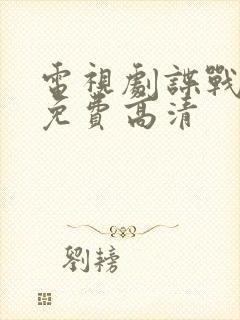 電視劇諜戰
免費高清
劉榜